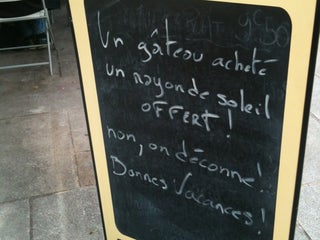 9€50
Un gâteau acheté
un rayon de soleil
OFFERT !
non, on déconne !..
Bonnes Vacances !